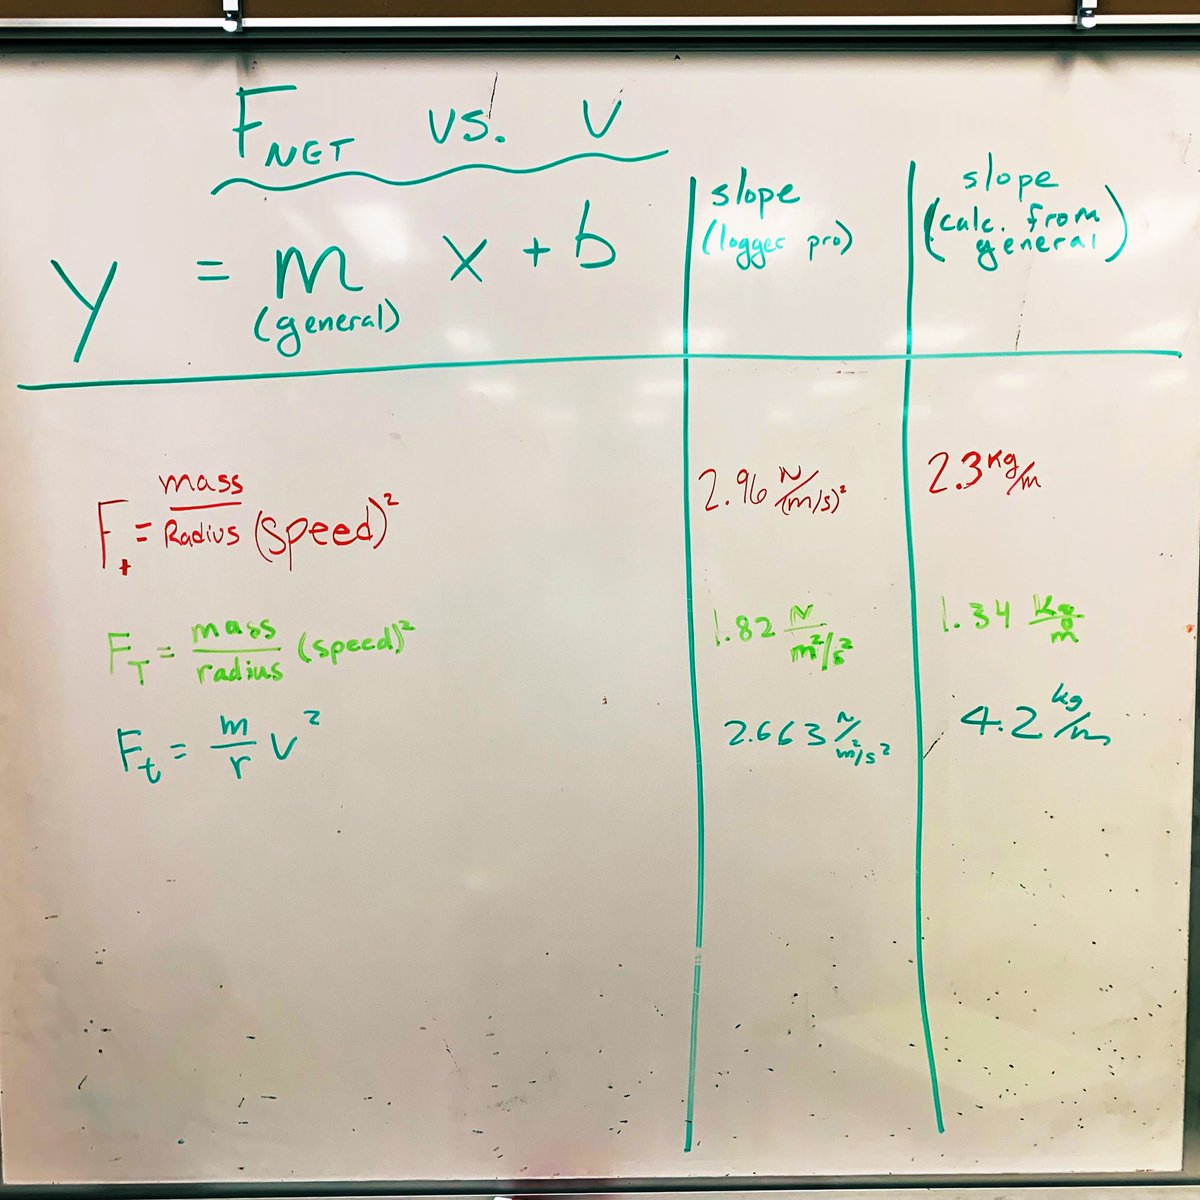 F_NET vs. v
y = m x + b
(general)
slope
(logger pro)
slope
(calc. from
general)
F_t = mass/Radius (speed)² 2.96 N/(m/s)² 2.3 kg/m
F_T = mass/radius (speed)² 1.82 N/m²/s² 1.34 Kg/m
F_t = m/r v² 2.663 N/m²/s² 4.2 kg/m